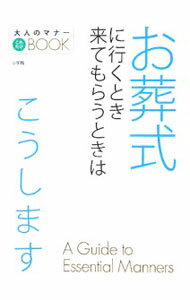 大人のマナー
BOOK
小学館
お葬式
に行くとき
来てもらうときは
こうします
A Guide to
Essential Manners